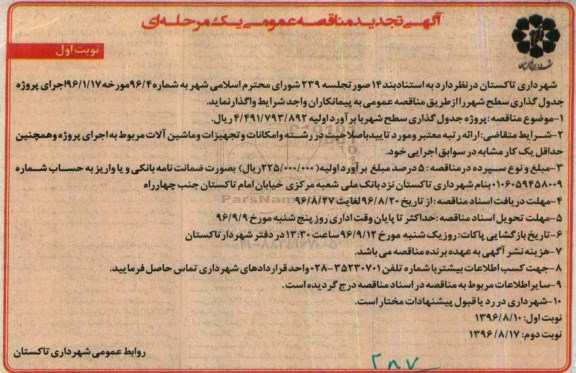 آگهی تجدید مناقصه عمومی یک مرحله‌ای
نوبت اول
شهرداری تاکستان در نظر دارد به استناد بند ۱۴ صورتجلسه ۲۳۹ شورای محترم اسلامی شهر به شماره ۹۶/۴ مورخه ۹۶/۱/۱۷ اجرای پروژه
جدول گذاری سطح شهر را از طریق مناقصه عمومی به پیمانکاران واجد شرایط واگذار نماید.
۱-موضوع مناقصه: پروژه جدول گذاری سطح شهر با برآورد اولیه ۴/۴۹۱/۷۹۳/۸۹۲ ریال.
۲-شرایط متقاضی: ارائه رتبه معتبر و مورد تایید با صلاحیت در رشته و امکانات و تجهیزات و ماشین آلات مربوط به اجرای پروژه و همچنین
حداقل یک کار مشابه در سوابق اجرایی خود.
۳-مبلغ و نوع سپرده در مناقصه: ۵ درصد مبلغ برآورد اولیه (۲۲۵/۰۰۰/۰۰۰ ریال) بصورت ضمانت نامه بانکی و یا واریز به حساب شماره
۰۱۰۶۰۵۹۴۵۸۰۰۹ بنام شهرداری تاکستان نزد بانک ملی شعبه مرکزی خیابان امام تاکستان جنب چهارراه
۴-مهلت دریافت اسناد مناقصه: از تاریخ ۹۶/۸/۲۰ لغایت ۹۶/۸/۲۷
۵-مهلت تحویل اسناد مناقصه: حداکثر تا پایان وقت اداری روز پنج شنبه مورخ ۹۶/۹/۹
۶-تاریخ بازگشایی پاکات: روز یک شنبه مورخ ۹۶/۹/۱۲ ساعت ۱۳:۳۰ در دفتر شهردار تاکستان
۷-هزینه نشر آگهی به عهده برنده مناقصه می باشد.
۸-جهت کسب اطلاعات بیشتر با شماره تلفن ۳۵۲۳۰۷۰۱-۰۲۸ واحد قراردادهای شهرداری تماس حاصل فرمایید.
۹-سایر اطلاعات مربوط به مناقصه در اسناد مناقصه درج گردیده است.
۱۰-شهرداری در رد یا قبول پیشنهادات مختار است.
نوبت اول: ۱۳۹۶/۸/۱۰
نوبت دوم: ۱۳۹۶/۸/۱۷
روابط عمومی شهرداری تاکستان
۲۸۷